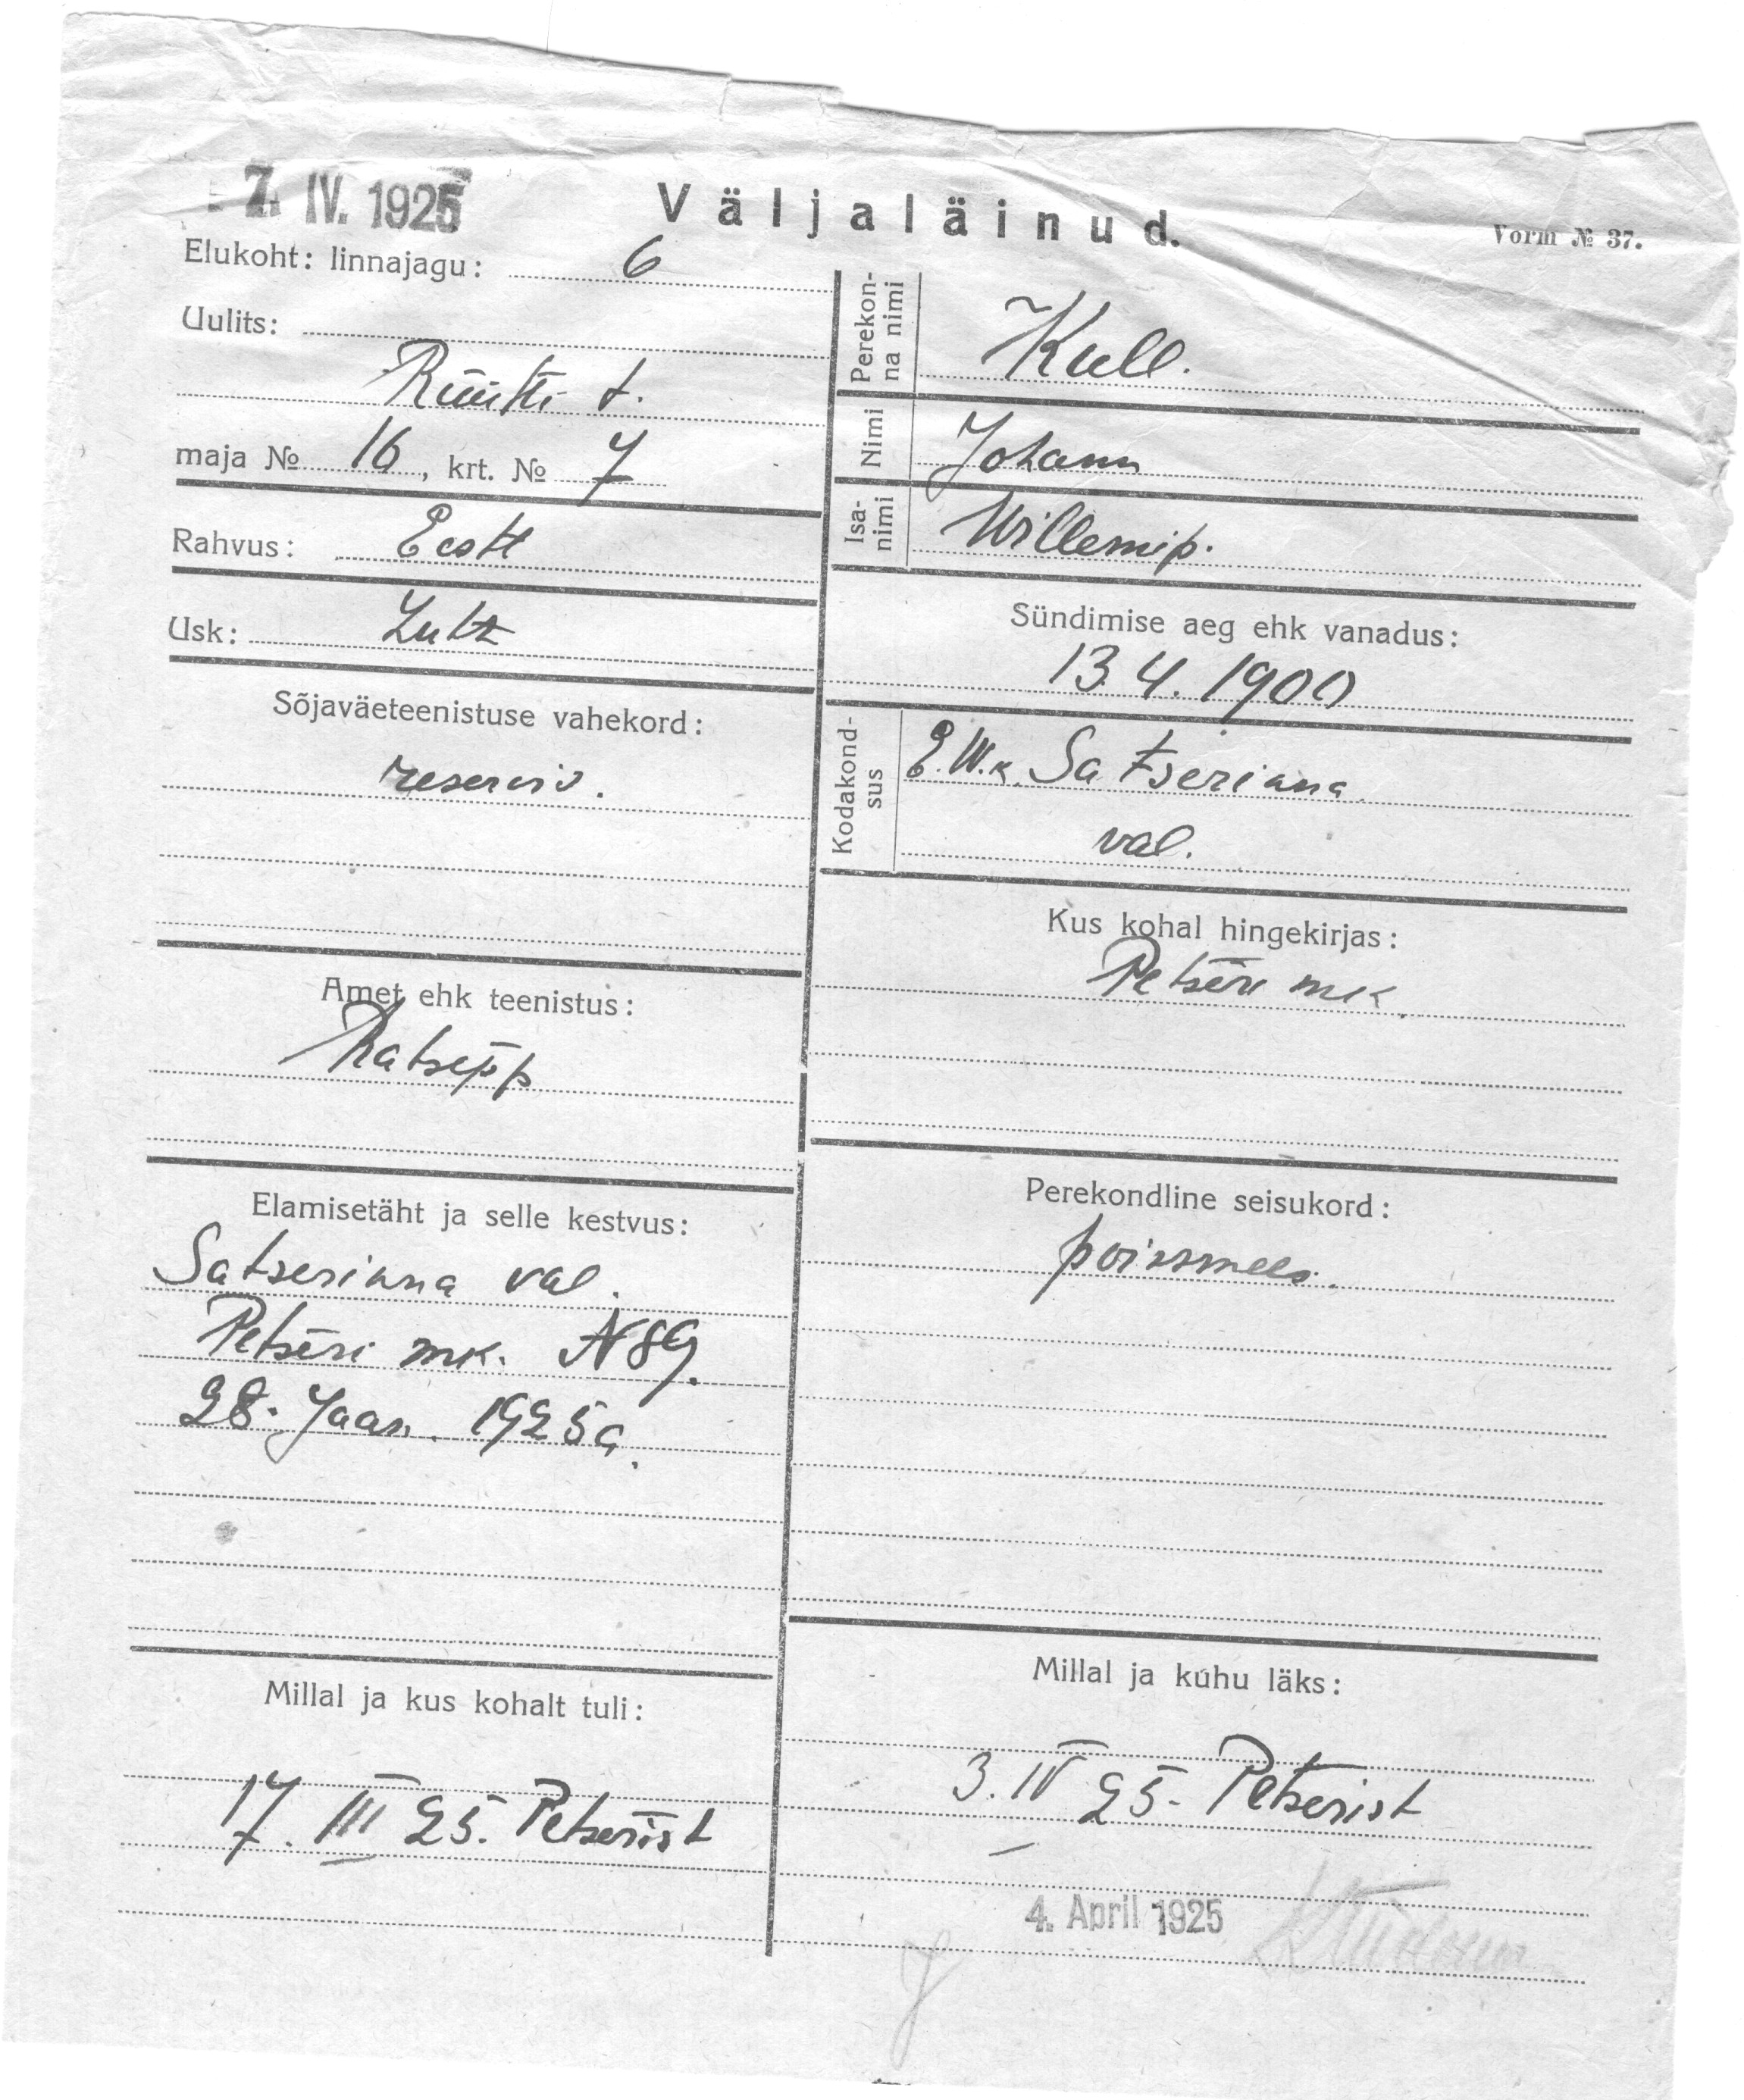 7. IV. 1925
Väljaläinud.
Vorm № 37.
Elukoht: linnajagu: 6
Uulits:
Rüütli t.
maja № 16, krt. № 7
Rahvus: Eestl
Usk: Luth
Sõjaväeteenistuse vahekord:
reservis.
Amet ehk teenistus:
Rätsepp
Elamisetäht ja selle kestvus:
Satserinna val.
Petseri mk. N 89.
28. Jaan. 1925 a.
Millal ja kus kohalt tuli:
17. III 25. Petserist
Perekon-
na nimi
Kull.
Nimi
Johann
Isa-
nimi
Willemi p.
Sündimise aeg ehk vanadus:
13.4.1900
Kodakond-
sus
E.W.k. Satserinna
val.
Kus kohal hingekirjas:
Petseri mk
Perekondline seisukord:
poissmees.
Millal ja kuhu läks:
3. IV 25. Petserist
4. April 1925